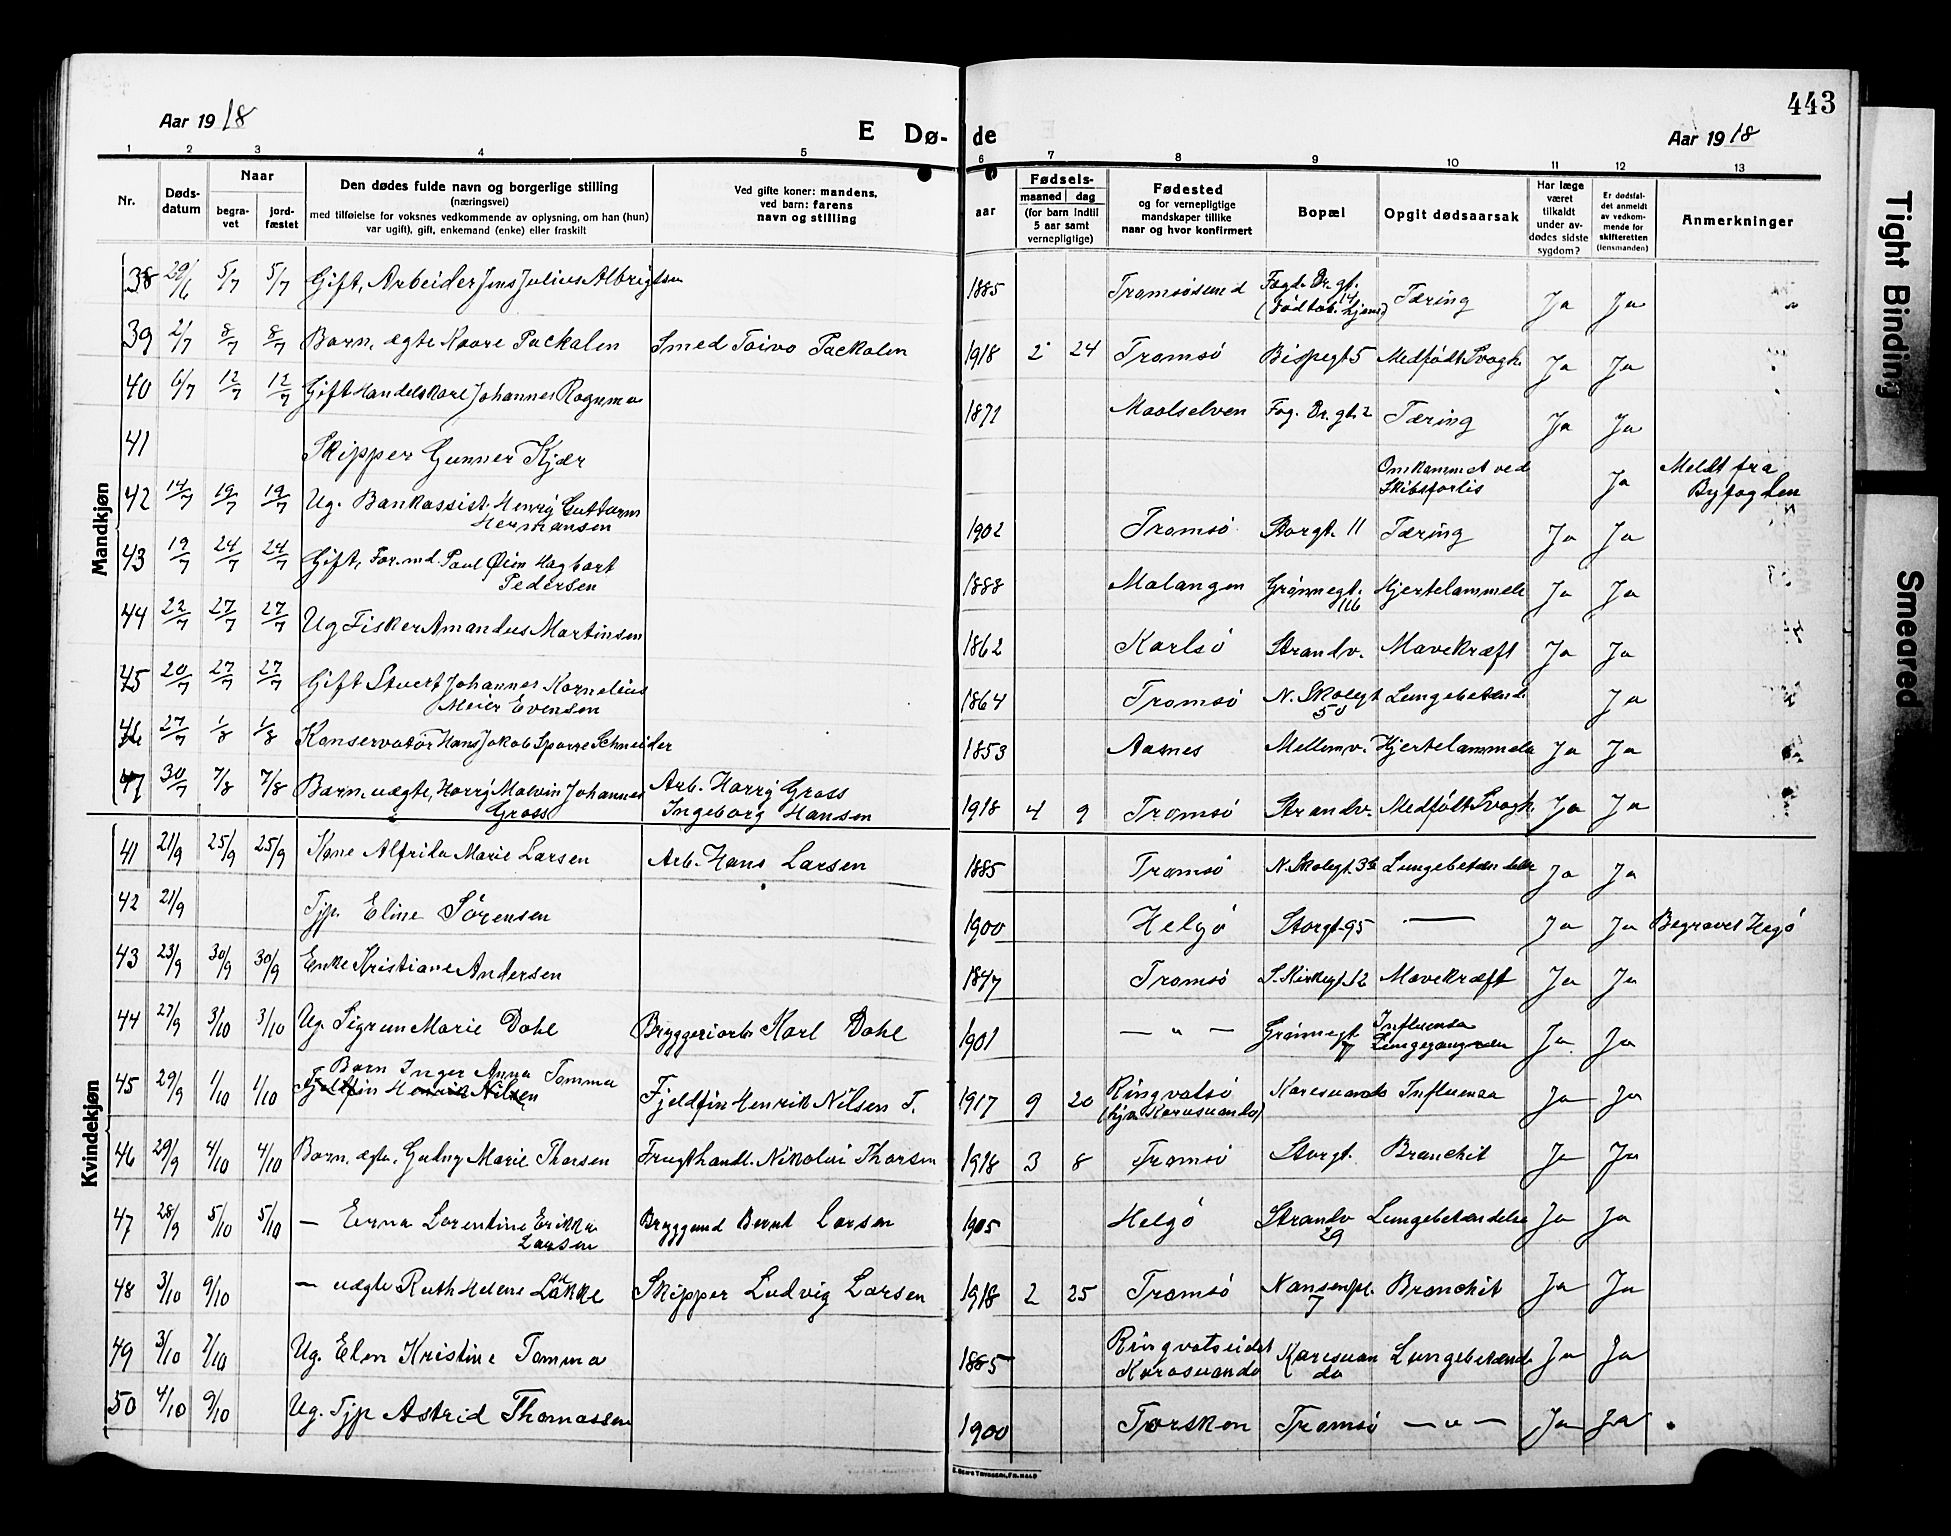 443
Aar 1918
E Dø- de
Aar 1918
1 2 3 4 5 6 7 8 9 10 11 12 13
Nr.
Døds-
datum
Naar
begra-
vet
jord-
fæstet
Den dødes fulde navn og borgerlige stilling
(næringsvei)
med tilføielse for voksnes vedkommende av oplysning, om han (hun)
var ugift), gift, enkemand (enke) eller fraskilt
Ved gifte koner: mandens,
ved barn: farens
navn og stilling
Fødsels-
aar
maaned dag
(for barn indtil
5 aar samt
vernepligtige)
Fødested
og for vernepligtige
mandskaper tillike
naar og hvor konfirmert
Bopæl
Opgit dødsaarsak
Har læge
været
tilkaldt
under av-
dødes sidste
sygdom?
Er dødsfal-
det anmeldt
av vedkom-
mende for
skifteretten
(lensmanden)
Anmerkninger
Mandkjøn
38 29/6 5/7 5/7 Gift, Arbeider Jens Julius Albrigtsen 1885 Tromsøsund Fogd. Dr. gt. 14 Tæring Ja Ja
39 2/7 8/7 8/7 Barn, ægte Kaare Packalen Smed Toivo Packalen 1918 2 24 Tromsø Bispegt 5 Medfødt Svagh. Ja Ja
40 6/7 12/7 12/7 Gift Handelskarl Johannes Rognmo 1871 Maalselven Fog. Dr. gt. 2 Tæring Ja Ja
41 Skipper Gunner Kjær Omkommet ved Skibsforlis Ja Meldt fra Byfogden
42 14/7 19/7 19/7 Ug. Bankassist. Henrÿ Guttorm
Hermansen 1902 Tromsø Storgt. 11 Tæring Ja Ja
43 19/7 24/7 24/7 Gift, For.md. Paul Øien Hagbart
Pedersen 1888 Malangen Grønnegt. 116 Hjertelammele Ja Ja
44 22/7 27/7 27/7 Ug Fisker Amandus Martinsen 1862 Karlsø Strandv. Mavekræft Ja Ja
45 20/7 27/7 27/7 Gift Stuert Johannes Kornelius
Meier Evensen 1864 Tromsø N. Skolegt 50 Lungebetænde Ja
46 27/7 1/8 1/8 Konservator Hans Jakob Sparre Schneider 1853 Aasnes Mellemv. Hjertelammele Ja Ja
47 30/7 7/8 7/8 Barn, uægte, Harrÿ Malvin Johannes
Gross Arb. Harrÿ Gross
Ingeborg Hansen 1918 4 9 Tromsø Strandv. Medfødt Svagh. Ja Ja
Kvindekjøn
41 21/9 25/9 25/9 Kone Alfrida Marie Larsen Arb. Hans Larsen 1885 Tromsø N. Skolegt. 36 Lungebetændelse Ja Ja
42 21/9 Tjp. Eline Sørensen 1900 Helgø Storgt 95 — Ja Ja Begravet Hegø
43 23/9 30/9 30/9 Enke Kristiane Andersen 1847 Tromsø S. Kirkegt. 12 Mavekræft Ja Ja
44 27/9 3/10 3/10 Ug. Sigrun Marie Dahl Bryggeriarb. Karl Dahl 1901 — " — Grønnegt. 7 Influensa
Lungegangræn Ja Ja
45 29/9 1/10 1/10 Barn Inger Anna Tomma
Fjeldfin Henrik Nilsen Fjeldfin Henrik Nilsen T. 1917 9 20 Ringvatsø
(hjm Karesuando) Karesuando Influensa Ja Ja
46 29/9 4/10 4/10 Barn, ægte, Gudny Marie Thorsen Frugthandl. Nikolai Thorsen 1918 3 8 Tromsø Storgt. Bronchit Ja Ja
47 28/9 5/10 5/10 — Erna Lorentine Erikka
Larsen Bryggemd Bernt Larsen 1905 Helgø Strandv 29 Lungebetændelse Ja Ja
48 3/10 9/10 — uægte Ruth Helene Løkke Skipper Ludvig Larsen 1918 2 25 Tromsø Nansenpl. 7 Bronchit Ja Ja
49 3/10 7/10 Ug. Elen Kristine Tomma 1885 Ringvatseidet
Karesuando Karesuan
do Lungebetænde Ja Ja
50 4/10 9/10 Ug. Tjp Astrid Thomassen 1900 Torsken Tromsø — " — Ja Ja
Tight Binding
Smeared